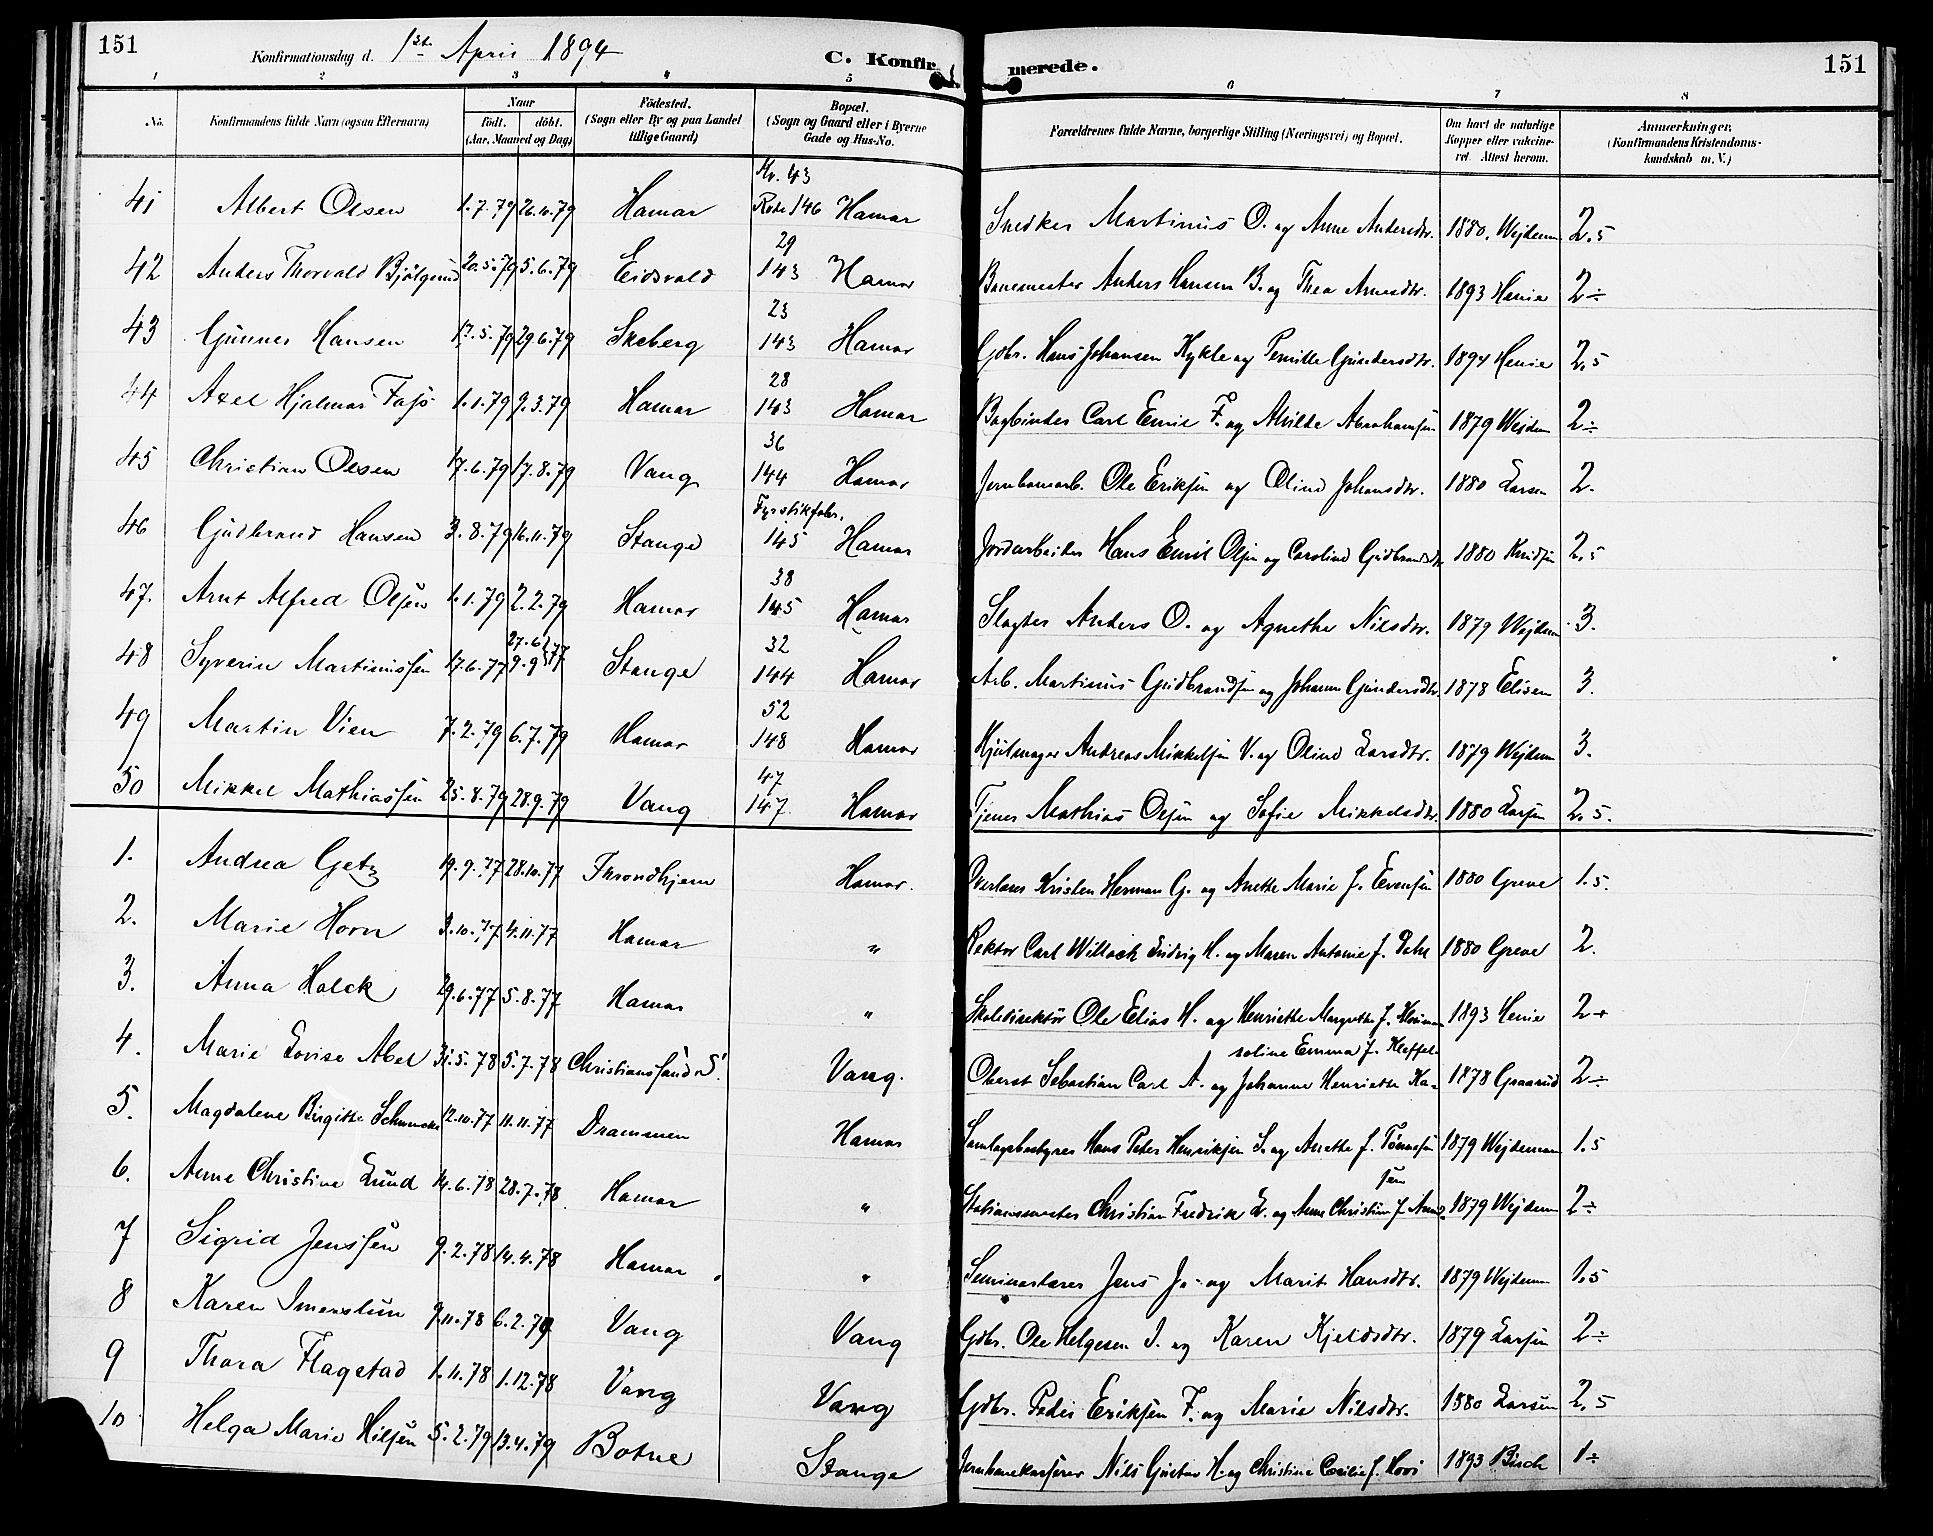 151
Konfirmationsdag d. 1ste April 1894
C. Konfir
merede.
151
1 2 3 4 5 6 7 8
No.
Konfirmandens fulde Navn (ogsaa Efternavn)
Naar
Födt. döbt.
(Aar, Maaned og Dag)
Födested.
(Sogn eller By og paa Landet
tillige Gaard)
Bopæl.
(Sogn og Gaard eller i Byerne
Gade og Hus-No.
Forældrenes fulde Navne, borgerlige Stilling (Næringsvei) og Bopæl.
Om havt de naturlige
Kopper eller vakcine-
ret. Attest herom.
Anmærkninger.
(Konfirmandens Kristendoms-
kundskab m. V.)
Nr. 43
41 Albert Olsen 1.7.79 26.10.79 Hamar Rode 146 Hamar Snedker Martinus O. og Anne Andersdtr. 1880. Wejdem 2.5
29
42 Anders Thorvald 20.5.79 5.6.79 Eidsvold 143 Hamar Banemester Anders Hansen B. og Thea Arnesdtr. 1893 Henie 2÷
23
43 Gunner Hansen 17.5.79 29.6.79 Skeberg 143 Hamar Gdbr. Hans Johansen Kykle og Pernille Gundersdtr. 1894 Henie 2.5
28
44 Axel Hjalmar 1.1.79 9.3.79 Hamar 143 Hamar Bogbinder Carl Emil F. og Alvilde Abrahamsen 1879 Wejdem 2÷
36
45 Christian Olsen 17.6.79 17.8.79 Vang 144 Hamar Jernbanearb. Ole Eriksen og Oline Johansdtr. 1880 Larsen 2.
Fyrstikfabr.
46 Gudbrand Hansen 3.8.79 16.11.79 Stange 145 Hamar Jordarbeider Hans Emil Olsen og Caroline Gudbrandsdtr 1880 Knudsen 2.5
38
47. Arnt Alfred Olsen 1.1.79 2.2.79 Hamar 145 Hamar Slagter Anders O. og Agnethe Nilsdtr. 1879 Wejdem 3.
27.6 77 32
48 Syverin Martinussen 17.6.77 9.9 Stange 144 Hamar Arb. Martinus Gudbrandsen og Johanne Gundersdtr. 1878 Elisen 3.
52
49 Martin Vien 7.2.79 6.7.79 Hamar 148 Hamar Hjulmager Andreas Mikkelsen V. og Oline Larsdtr. 1879 Wejdem 3.
47
50 Mikkel Mathiassen 25.8.79 28.9.79 Vang 147. Hamar Tjener Mathias Olsen og Sofie Mikkelsdtr. 1880 Larsen 2.5.
1. Andrea Getz 19.9.77 28.10.77 Throndhjem Hamar. Overlærer Kristen Herman G. og Anethe Marie f. Evensen 1880 Greve 1.5.
2. Marie Horn 3.10.77 4.11.77 Hamar " Rektor Carl Willoch Ludvig H. og Maren Antonie f. Dahl 1880 Greve 2.
3. Anna Holck 29.6.77 5.8.77 Hamar " Skoledirektör Ole Elias H. og Henriette Margrethe f. 1893 Henie 2+
roline Emma f. Kleffel
4. Marie Lovise Abel 31.5.78 5.7.78 Christianssand S. Vang. Oberst Sebastian Carl A. og Johanne Henriette Ka- 1878 Graarud 2÷
5. Magdalene Birgitte 12.10.77 11.11.77 Drammen Hamar Samlagsbestyrer Hans Peter Henriksen S. og Anethe f. Tönnesen 1879 Wejdeman 1.5
sen
6. Anne Christine Lund 14.6.78 28.7.78. Hamar " Stationsmester Christian Fredrik L. og Anne Christine f. 1879 Wejdem 2÷
7 Sigrid Jenssen 9.2.78 14.4.78 Hamar " Seminarlærer Jens J. og Marit Hansdtr. 1879 Wejdem 1.5
8 Karen Imerslun 9.11.78 6.2.79 Vang Vang Gdbr. Ole Helgesen I. og Karen Kjeldsdtr. 1879 Larsen 2÷
9 Thora Flagstad 1.11.78 1.12.78 Vang Vang Gdbr. Peder Eriksen F. og Marie Nilsdtr. 1880 Larsen 2.5
10 Helga Marie Hilsen 5.2.79 13.4.79 Botne Stange Jernbanekasserer Nils Gustav H. og Christine Cecilie f. Hovi 1893 Birch 1÷